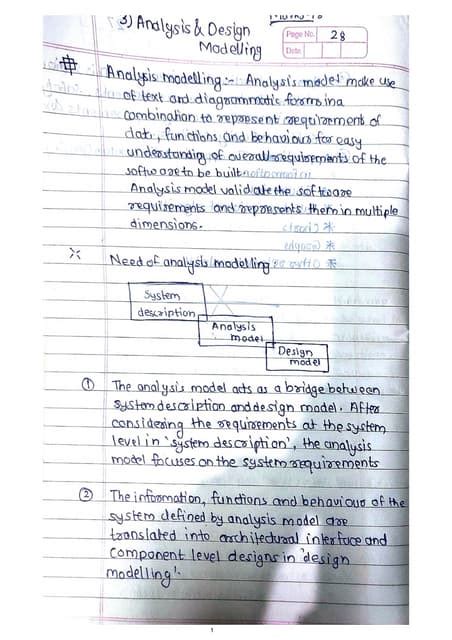 3) Analysis & Design
Modelling
Page No. 28
Date
Analysis modelling :- Analysis model make use
of text and diagrammatic forms in a
combination to represent requirements of
data, functions, and behaviour for easy
understanding of overall requirements of the
software to be built.
Analysis model validate the software
requirements and represents them in multiple
dimensions.
Need of analysis modelling
System
description
Analysis
model
Design
model
① The analysis model acts as a bridge between
system description and design model. After
considering the requirements at the system
level in 'system description', the analysis
model focuses on the system requirements
② The information, functions and behaviour of the
system defined by analysis model are
translated into architectural interface and
component level designs in 'design
modelling'.
1